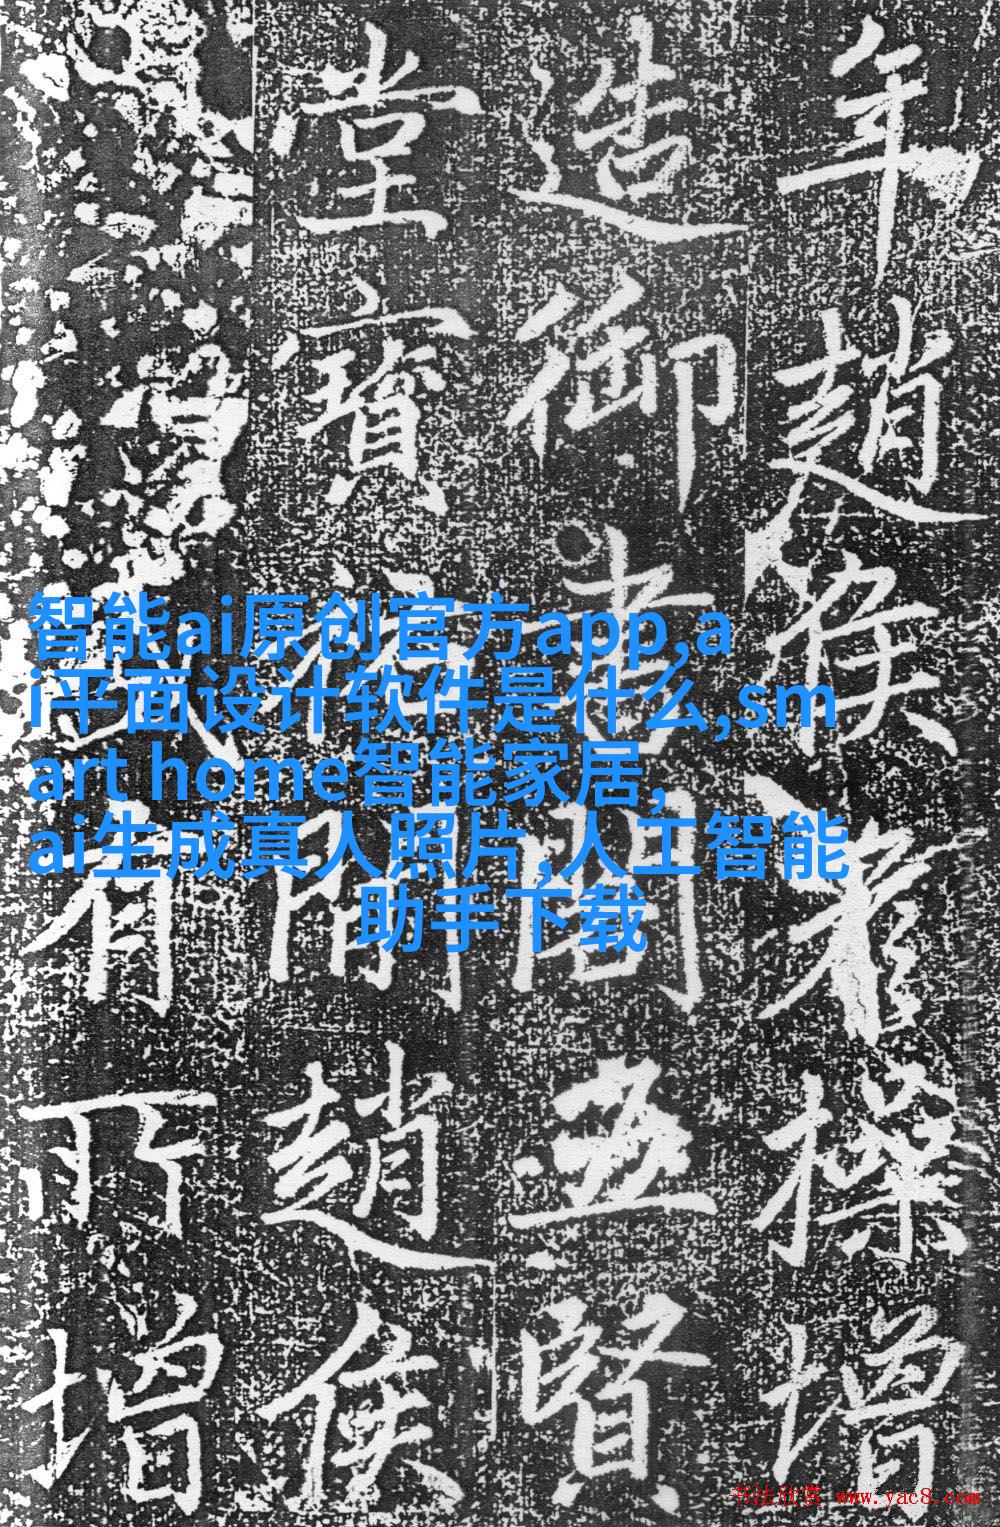 年趙侯操增
造御書閣五賢
堂寶閒趙侯
有所增
智能ai原创官方app,a
i平面设计软件是什么,sm
art home智能家居,
ai生成真人照片,人工智能
助手下载
书法欣赏 www.yac8.com